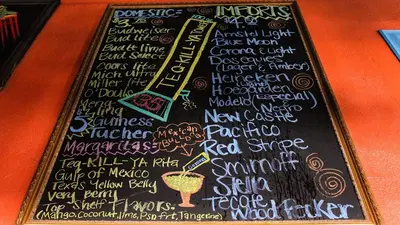 DOMESTIC
Budweiser
Bud lite
Bud lt lime
Bud Select
Coors lite
Mich ultra
Miller lite
O'Douls
TEQ-KILL-YA
IMPORTS
Amstel Light
Blue Moon
Corona & Light
Dosequies
(Lager & Amber)
Heineken
Hoegarden
Modelo (Especial/
Negro
New Castle
Pacifico
Red Stripe
Smirnoff
Stella
Tecate
Wood Pecker
Yuengling
Guinness
Tucher
Margaritas
Teq-KILL-YA RITA
Gulf of Mexico
Texas Yellow Belly
Very Berry
Top Shelf Flavors.
(Mango, Coconut, lime, Psn frt, Tangerine)
Mexican